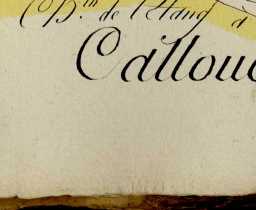 Ch.ⁱⁿ de l'Etang à
Callou